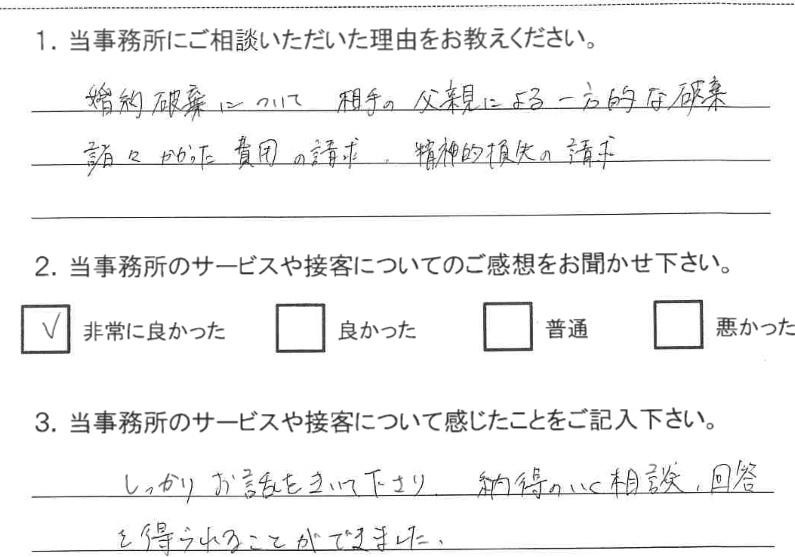 1. 当事務所にご相談いただいた理由をお教えください。
婚約破棄について 相手の父親による一方的な破棄
諸々かかった費用の請求、精神的損失の請求
2. 当事務所のサービスや接客についてのご感想をお聞かせ下さい。
✓ 非常に良かった 良かった 普通 悪かった
3. 当事務所のサービスや接客について感じたことをご記入下さい。
しっかりお話をきいて下さり、納得のいく相談、回答
を得られることができました。